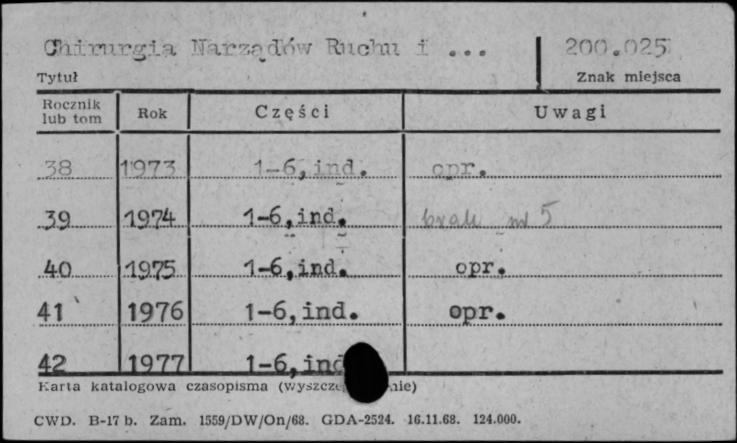 Chirurgia Narządów Ruchu i ... 200.025
Tytuł Znak miejsca
Rocznik lub tom Rok Części Uwagi
38 1973 1-6, ind. opr.
39 1974 1-6, ind. brak nr 5
40 1975 1-6, ind. opr.
41 1976 1-6, ind. opr.
42 1977 1-6, ind
Karta katalogowa czasopisma
CWD. B-17 b. Zam. 1559/DW/On/68. GDA-2524. 16.11.68. 124.000.